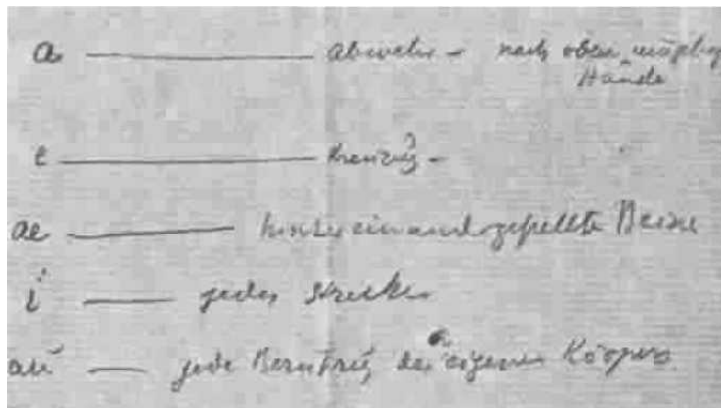 a — abwehr – nach oben
Hände
e — Kreuzung –
ae — hintereinandergestellte Beine
i — jedes strecken
au — jede Berührung des eigenen Körpers